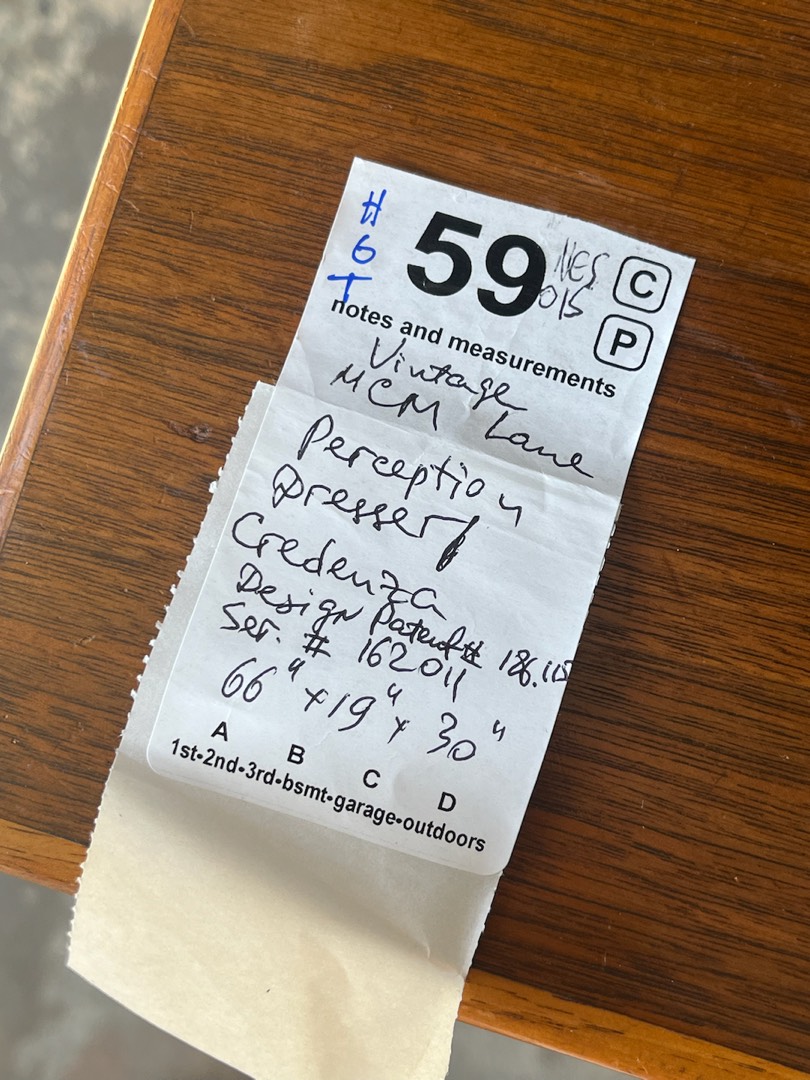 #
6
T
59
NES
015
C
P
notes and measurements
Vintage
MCM Lane
Perception
Dresser/
Credenza
Design Patent#
Ser. # 162011
66" x 19" x 30"
A B C D
1st•2nd•3rd•bsmt•garage•outdoors